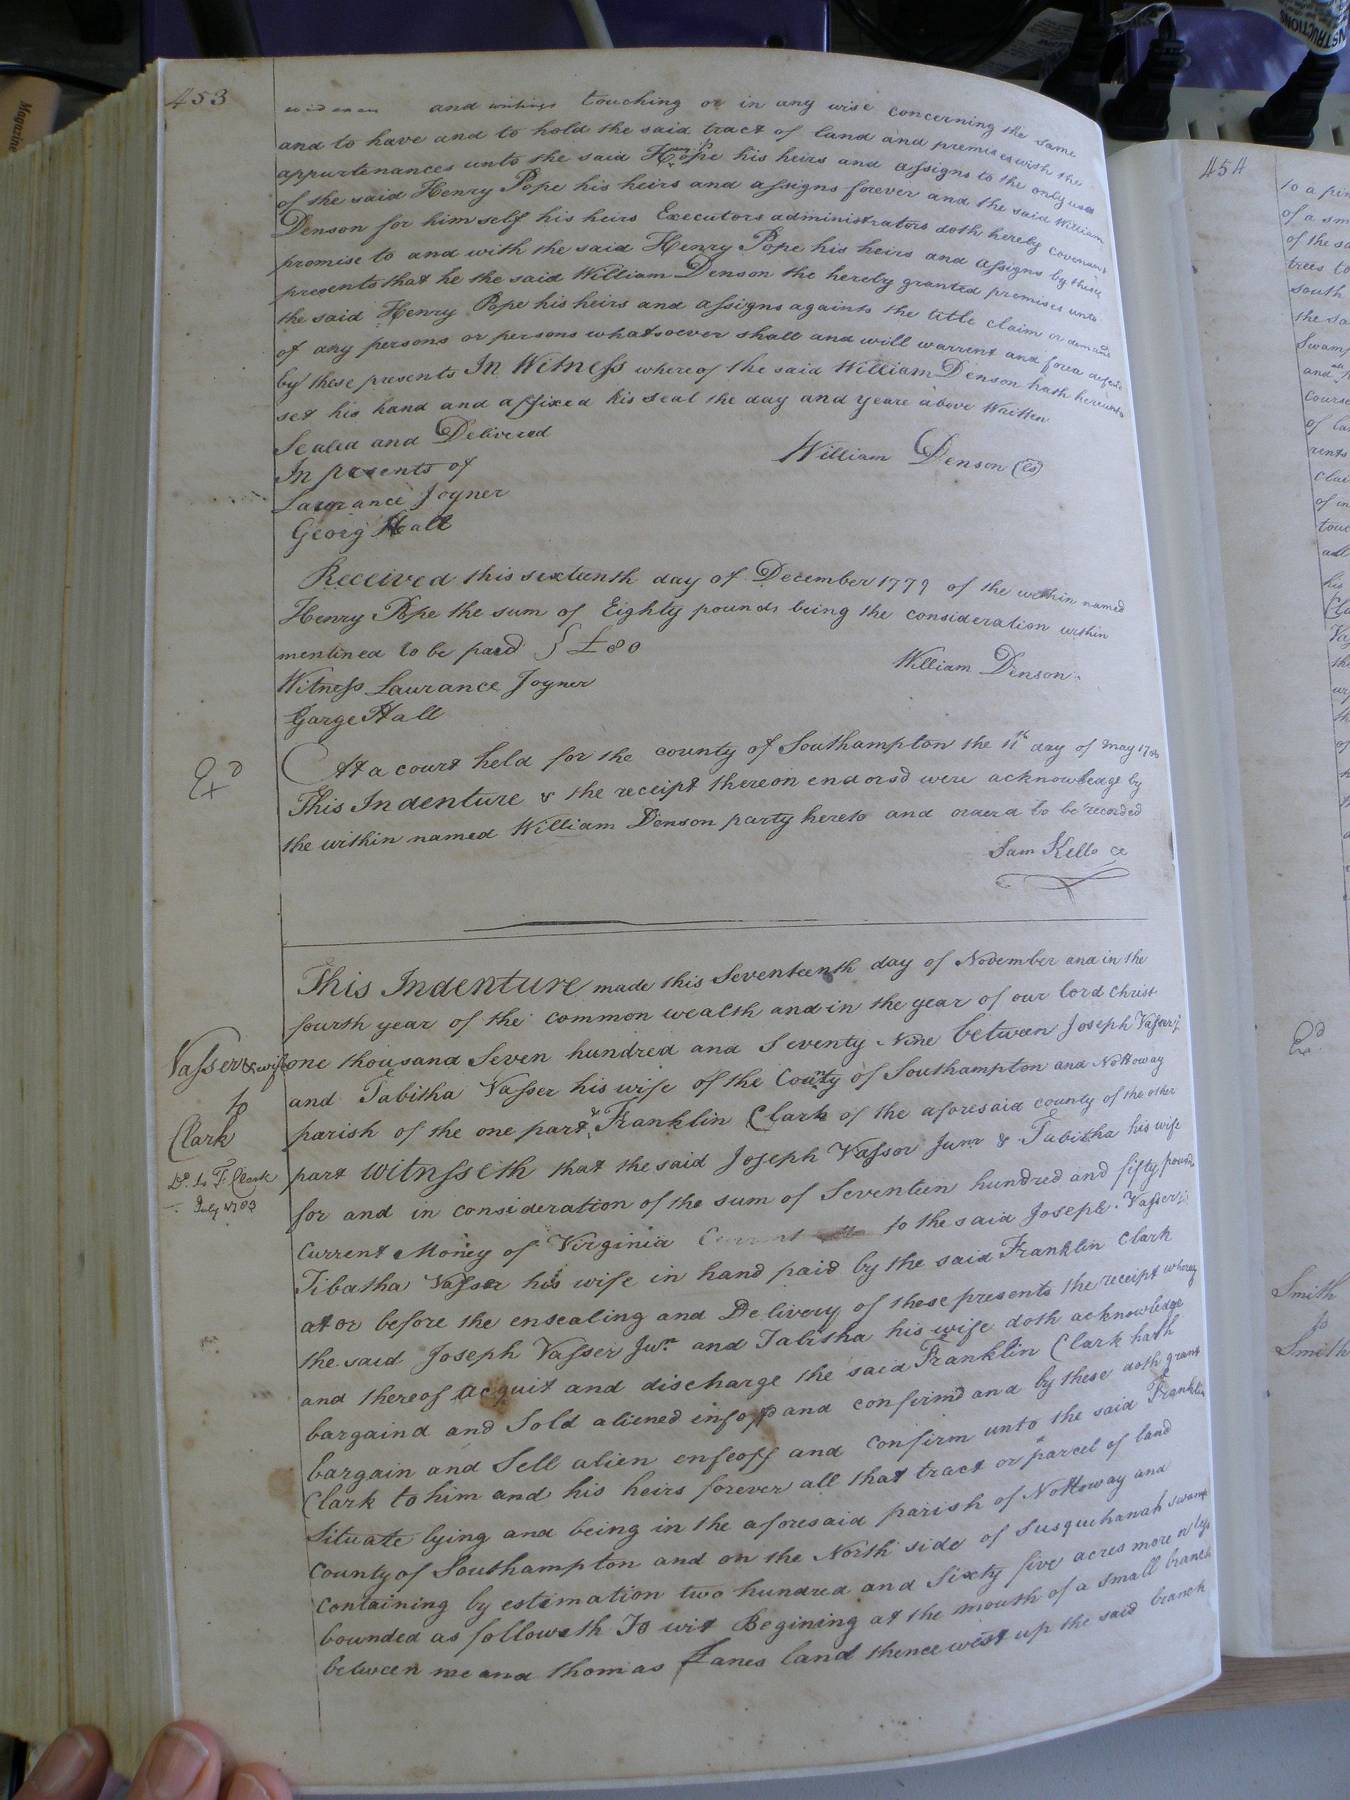 453
and writings touching or in any wise concerning the same
and to have and to hold the said tract of land and premises with the
appurtenances unto the said Henry Pope his heirs and assigns to the only use
of the said Henry Pope his heirs and assigns forever and the said William
Denson for him self his heirs Executors administrators doth hereby covenant
promise to and with the said Henry Pope his heirs and assigns by these
presents that he the said William Denson the hereby granted premises unto
the said Henry Pope his heirs and assigns againts the title claim or demand
of any persons or persons whatsoever shall and will warrent and forea defend
by these presents In Witness whereof the said William Denson hath hereunto
set his hand and affixed his seal the day and yeare above Written
Sealed and Delivered
William Denson (Ls)
In presents of
Laurance Joyner
Georg Hall
Received this sixteenth day of December 1779 of the within named
Henry Pope the sum of Eighty pounds being the consideration within
mentined to be paid } £80
William Denson
Witness Laurance Joyner
Garge Hall
At a court held for the county of Southampton the 11th day of May
Exd
This Indenture & the receipt thereon endorsd were acknowledge by
the within named William Denson party hereto and orderd to be recorded
Sam Kello Ce
This Indenture made this Seventeenth day of November and in the
fourth year of the common wealth and in the year of our lord Christ
one thousand Seven hundred and Seventy Nine between Joseph Vasser Jr
and Tabitha Vasser his wife of the County of Southampton and Nottoway
parish of the one part & Franklin Clark of the aforesaid county of the other
part Witnsseth that the said Joseph Vassor Junr & Tabitha his wife
for and in consideration of the sum of Seventeen hundred and fifty pounds
Current Money of Virginia Current to the said Joseph Vasser
Tibatha Vasser his wife in hand paid by the said Franklin Clark
at or before the ensealing and Delivery of these presents the receipt whereof
the said Joseph Vasser Junr and Tabitha his wife doth acknowledge
and thereof acquit and discharge the said Franklin Clark hath
bargaind and Sold aliened and confirmd and by these doth grant
bargain and Sell alien enfeoff and confirm unto the said Franklin
Clark to him and his heirs forever all that tract or parcel of land
Situate lying and being in the aforesaid parish of Nottoway and
County of Southampton and on the North side of Susquehanah swamp
containing by estimation two hundred and Sixty five acres more or less
bounded as followeth To wit Begining at the mouth of a small branch
between me and thomas Lanes land thence west up the said branch
Vasser & wife
to
Clark
Dd. to F. Clark
July 1783
454
to a pin
of a sm
of the sa
trees to
south
the sa
Swamp
and
course
of la
rents
clai
of in
touc
all
his
Cla
Va
the
Exd
Smith
to
Smith
Magazine
INSTRUCTIONS